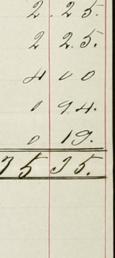 2 25.
2 25.
4 00
0 94.
0 19.
75 35.